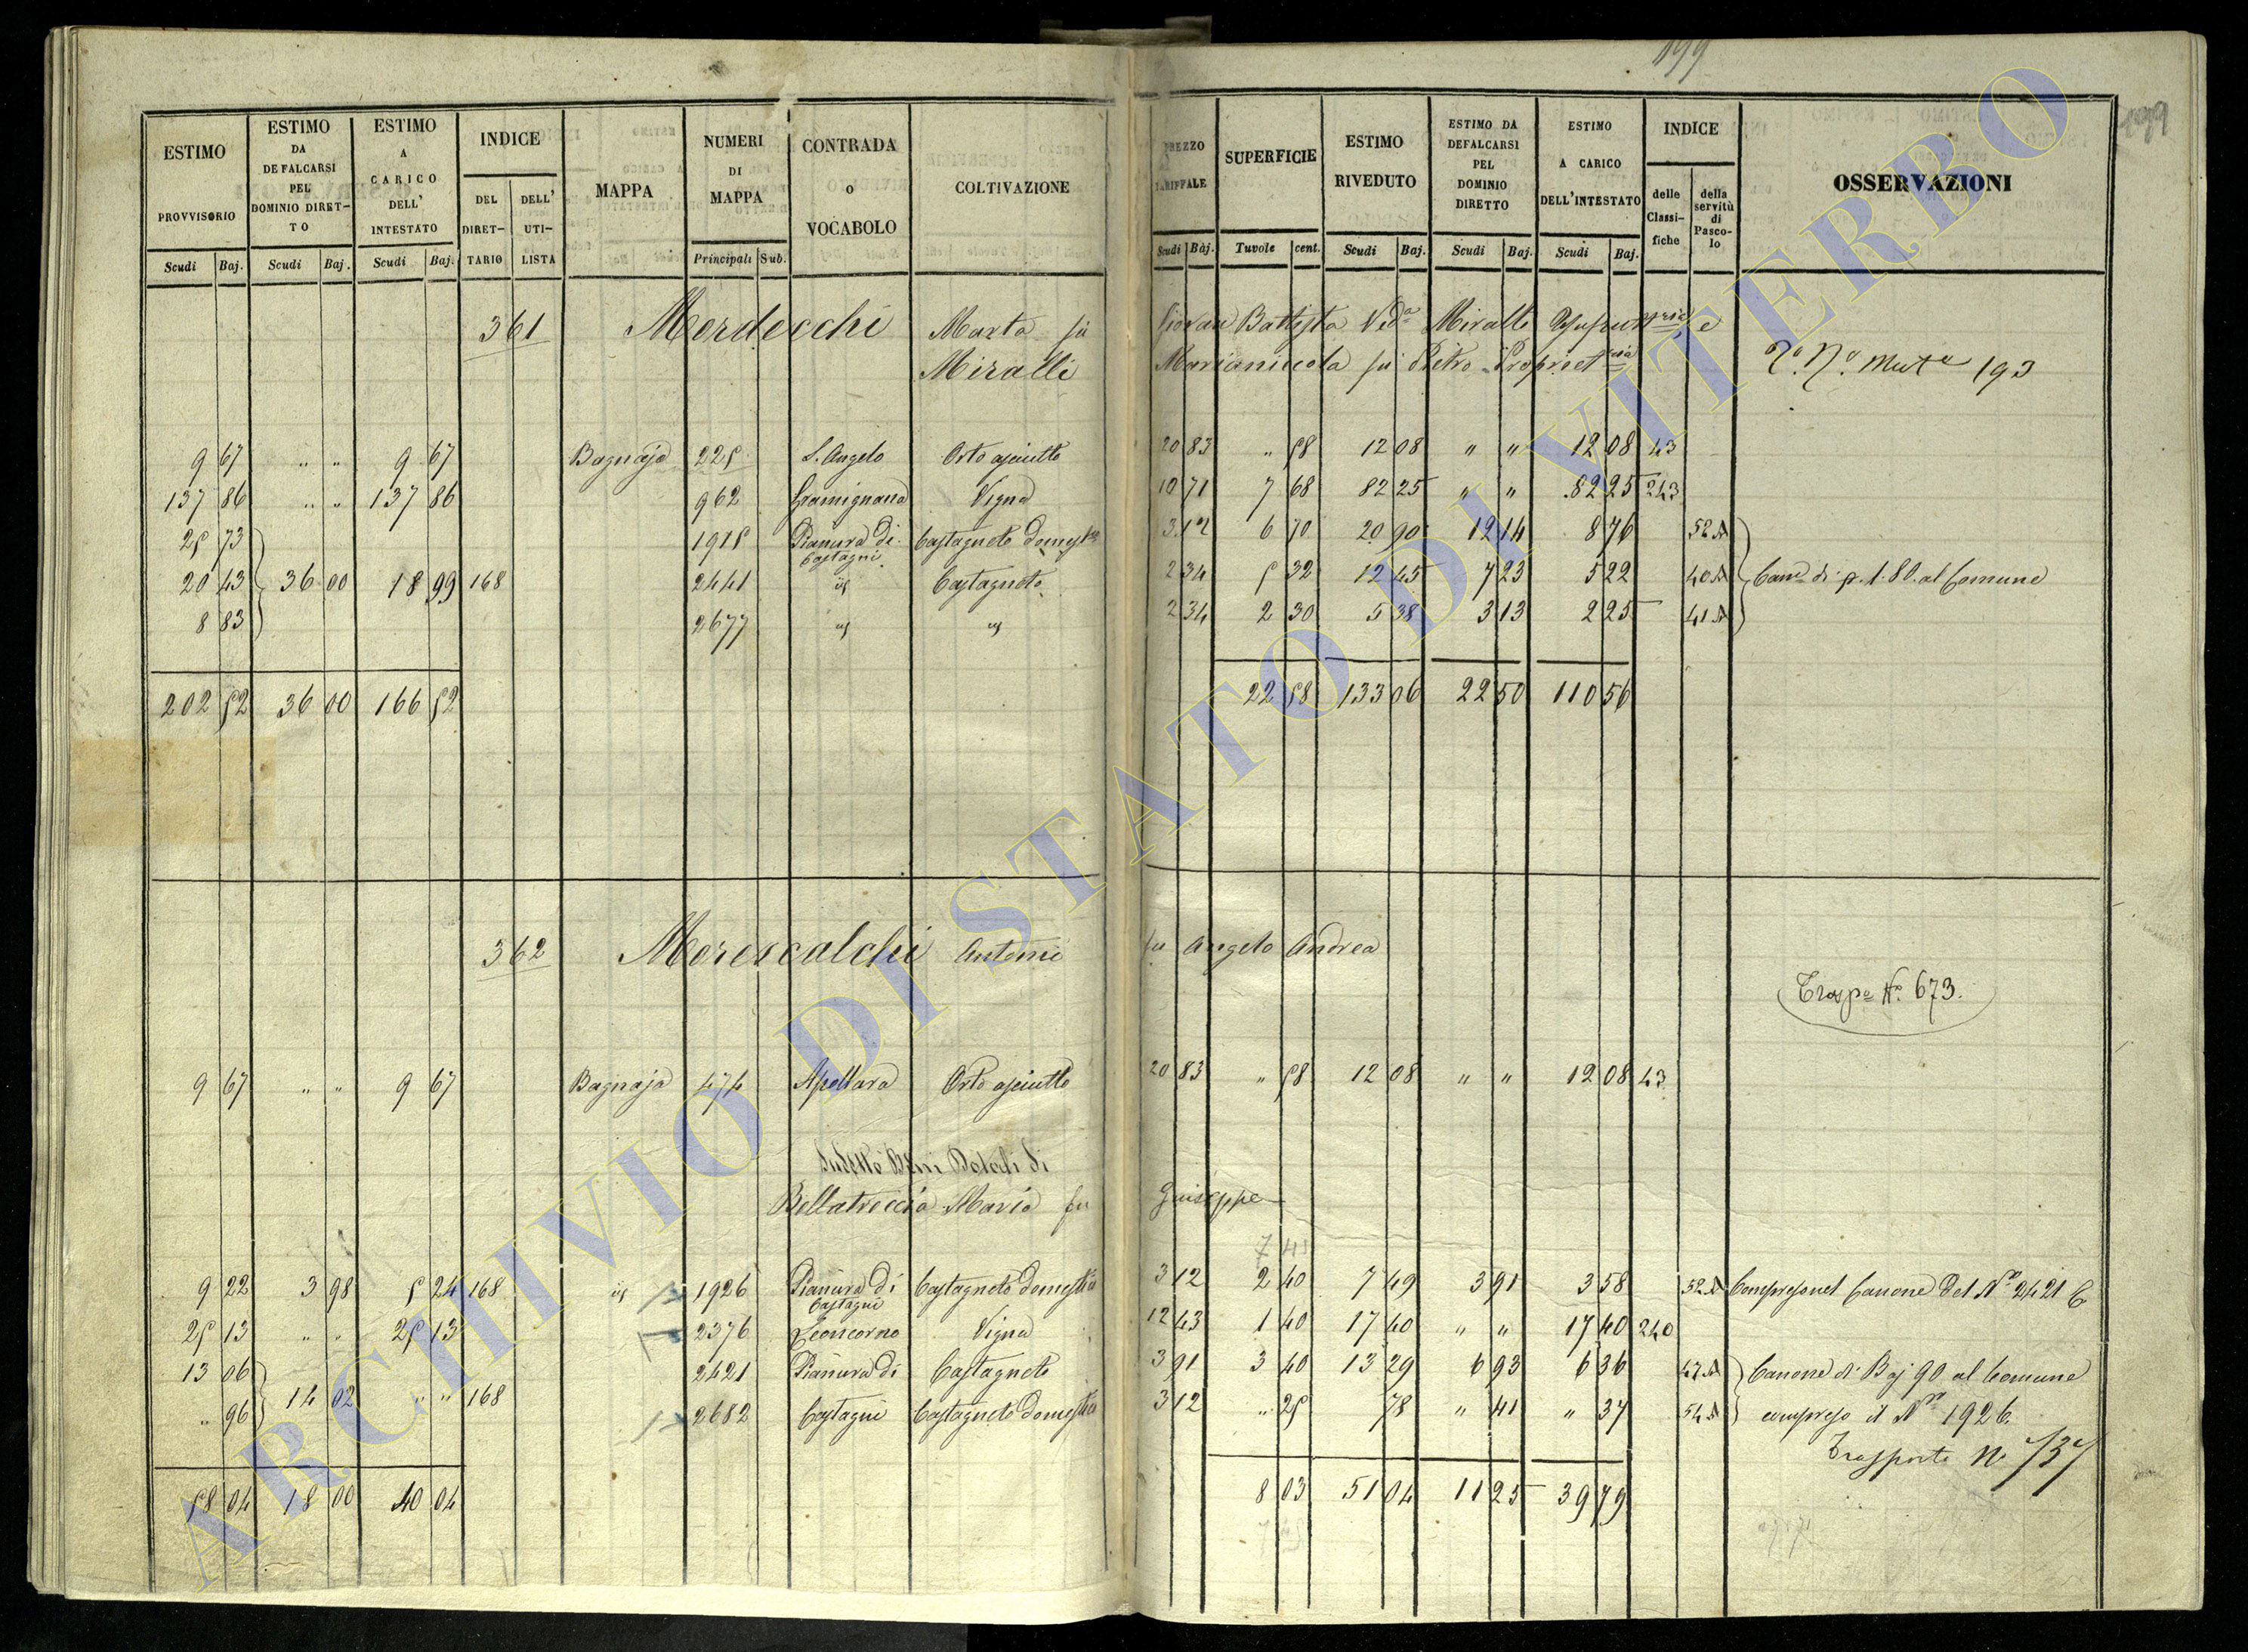 199
199
ESTIMO PROVVISORIO | ESTIMO DA DEFALCARSI PEL DOMINIO DIRETTO | ESTIMO A CARICO DELL' INTESTATO | INDICE DEL DIRETTARIO | DELL' UTILISTA | MAPPA | NUMERI DI MAPPA | CONTRADA O VOCABOLO | COLTIVAZIONE | PREZZO TARIFFALE | SUPERFICIE | ESTIMO RIVEDUTO | ESTIMO DA DEFALCARSI PEL DOMINIO DIRETTO | ESTIMO A CARICO DELL'INTESTATO | INDICE delle Classifiche | della servitù di Pascolo | OSSERVAZIONI
Scudi | Baj. | Scudi | Baj. | Scudi | Baj. | Principali | Sub. | Scudi | Baj. | Tavole | cent. | Scudi | Baj. | Scudi | Baj. | Scudi | Baj.
361 Mordecchi Marta fu Giovan Battista Ved.a Miralli Usufrut.ria e
Miralli Marianicola fu Pietro Propriet.ria
Mut.e 193
9 67 " " 9 67 Bagnaja 225 S. Angelo Orto asciutto 20 83 " 58 12 08 " " 12 08 43
137 86 " " 137 86 962 Gramignana Vigna 10 71 7 68 82 25 " " 82 25 243
25 73 1915 Pianura di Castagni Castagneto domest.co 3 12 6 70 20 90 12 14 8 76 52 A
20 43 36 00 18 99 168 2441 id Castagneto 2 34 5 32 12 45 7 23 5 22 40 A Can.e di p. 1.80. al Comune
8 83 2677 id id 2 34 2 30 5 38 3 13 2 25 41 A
202 52 36 00 166 52 22 58 133 06 22 50 110 56
362 Morescalchi Antonio fu Angelo Andrea
Trasp.e N.o 673.
9 67 " " 9 67 Bagnaja 474 Apollara Orto asciutto 20 83 " 58 12 08 " " 12 08 43
Beni Dotali di
Bellatreccia Maria fu Giuseppe
7 41
9 22 3 98 5 24 168 id 1926 Pianura di Castagni Castagneto domestico 3 12 2 40 7 49 3 91 3 58 52 A Compreso nel Canone del N.o 2421
25 13 " " 25 13 2376 Leoncorno Vigna 12 43 1 40 17 40 " " 17 40 240
13 06 14 02 " " 168 2421 Pianura di Castagneto 3 91 3 40 13 29 6 93 6 36 47 A Canone di Baj 90 al Comune
" 96 2682 Castagni Castagneto domestico 3 12 " 25 78 " 41 " 37 54 A compreso il N.o 1926.
Trasporto N. 737
58 04 18 00 40 04 8 03 51 04 11 25 39 79
ARCHIVIO DI STATO DI VITERBO